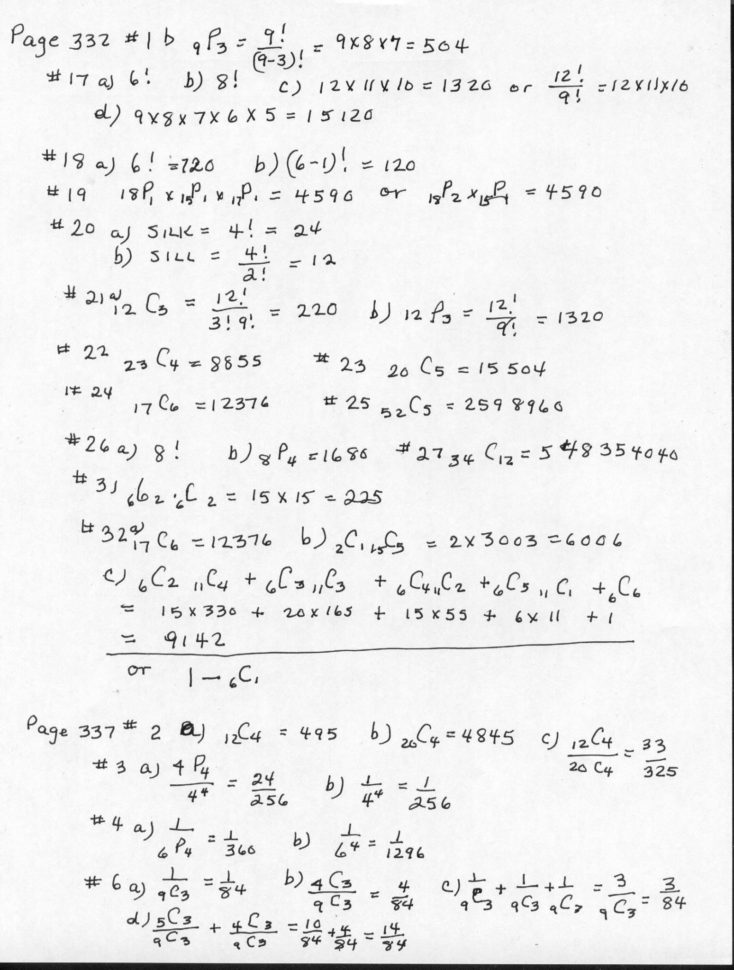 Page 332 #1 b ₉P₃ = 9!/(9-3)! = 9x8x7 = 504
#17 a) 6! b) 8! c) 12 x 11 x 10 = 1320 or 12!/9! = 12x11x10
d) 9x8x7x6x5 = 15120
#18 a) 6! = 720 b) (6-1)! = 120
#19 ₁₈P₁ x ₁₅P₁ x ₁₇P₁ = 4590 or ₁₈P₂ x ₁₅P₁ = 4590
#20 a) SILK = 4! = 24
b) SILL = 4!/2! = 12
#21 a) ₁₂C₃ = 12!/3!9! = 220 b) ₁₂P₃ = 12!/9! = 1320
#22 ₂₃C₄ = 8855 #23 ₂₀C₅ = 15504
#24 ₁₇C₆ = 12376 #25 ₅₂C₅ = 2598960
#26 a) 8! b) ₈P₄ = 1680 #27 ₃₄C₁₂ = 548354040
#31 ₆C₂ · ₆C₂ = 15 x 15 = 225
#32 a) ₁₇C₆ = 12376 b) ₂C₁ ₁₅C₅ = 2x3003 = 6006
c) ₆C₂ ₁₁C₄ + ₆C₃ ₁₁C₃ + ₆C₄ ₁₁C₂ + ₆C₅ ₁₁C₁ + ₆C₆
= 15 x 330 + 20 x 165 + 15 x 55 + 6 x 11 + 1
= 9142
or 1 - ₆C₁
Page 337 #2 a) ₁₂C₄ = 495 b) ₂₀C₄ = 4845 c) ₁₂C₄/₂₀C₄ = 33/325
#3 a) ₄P₄/4⁴ = 24/256 b) 1/4⁴ = 1/256
#4 a) 1/₆P₄ = 1/360 b) 1/6⁴ = 1/1296
#6 a) 1/₉C₃ = 1/84 b) ₄C₃/₉C₃ = 4/84 c) 1/₉C₃ + 1/₉C₃ + 1/₉C₃ = 3/₉C₃ = 3/84
d) ₅C₃/₉C₃ + ₄C₃/₉C₃ = 10/84 + 4/84 = 14/84